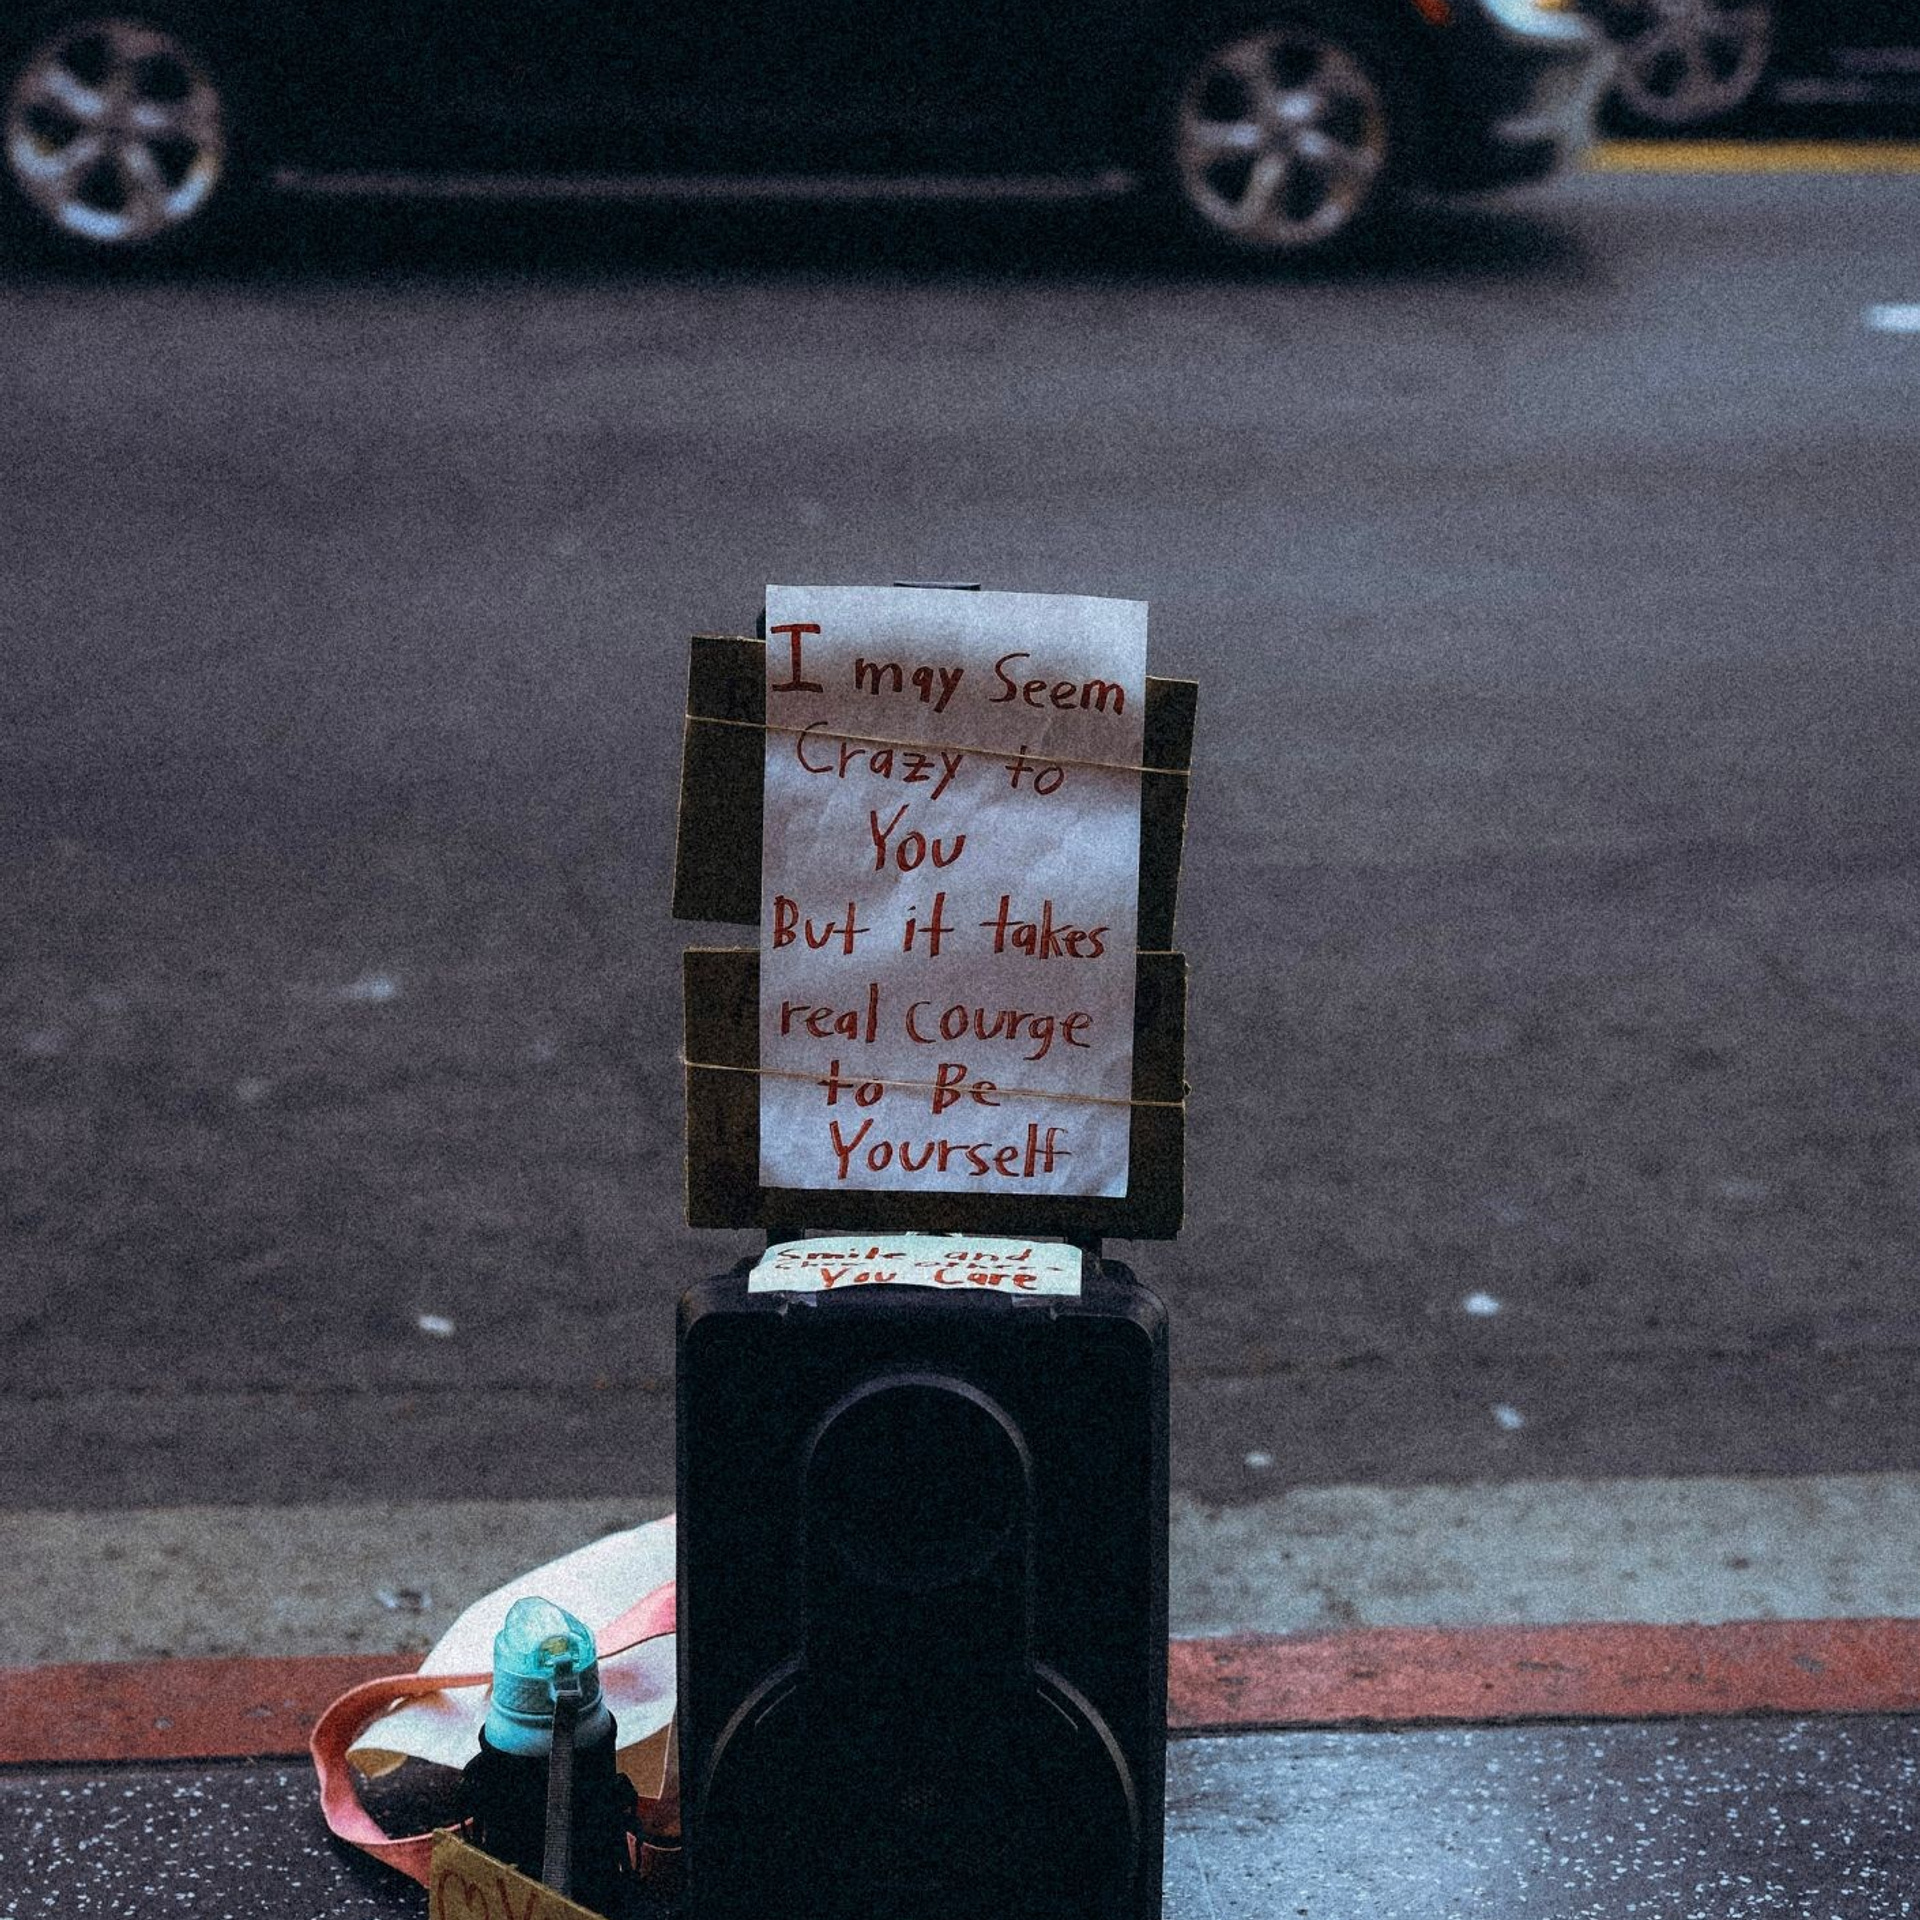 I may Seem
Crazy to
You
But it takes
real Courge
to Be
Yourself
Smile and
You Care
MY